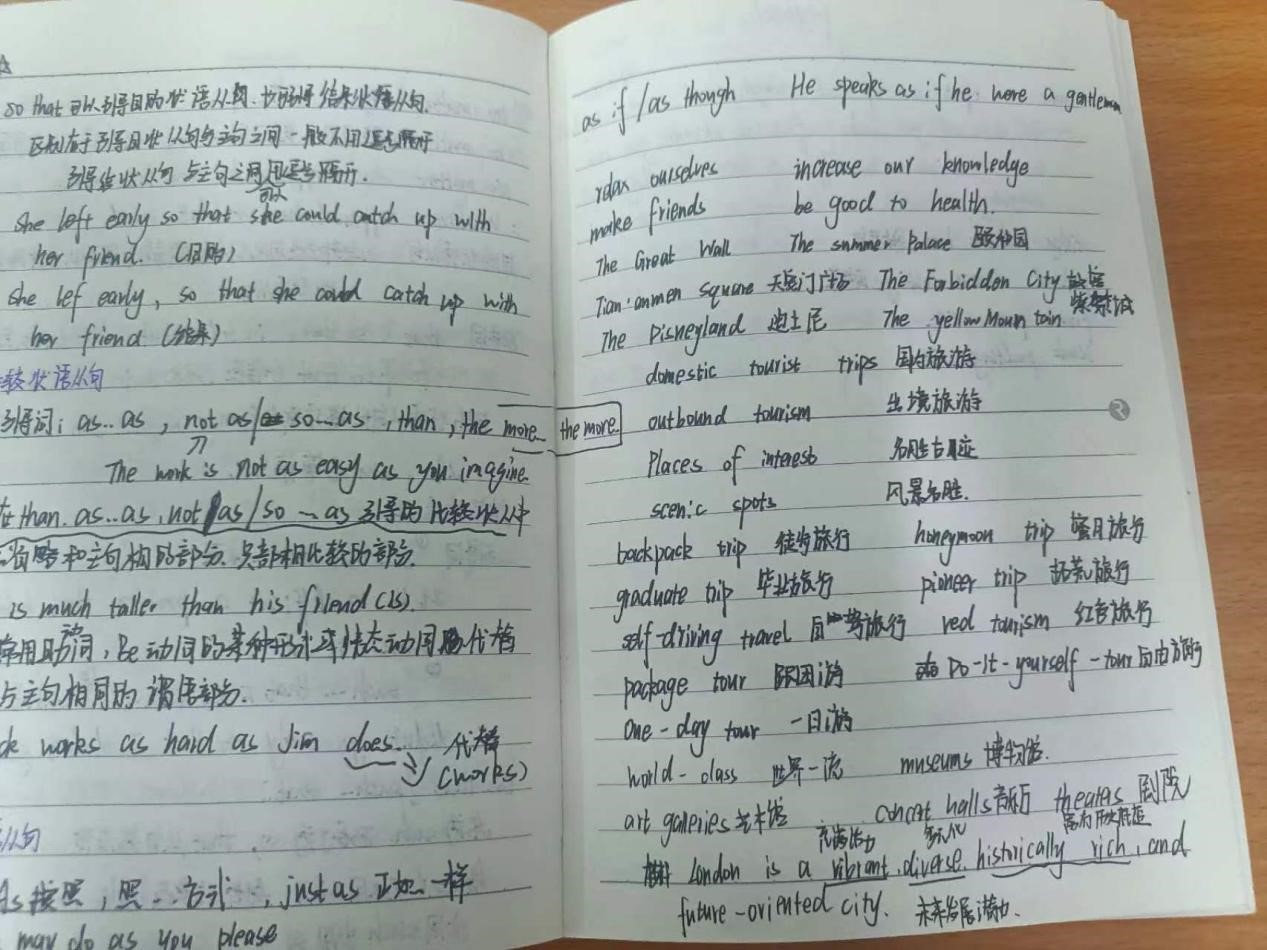 so that 可以引导目的状语从句,也可引导结果状语从句.
区别在于引导目状从句与主句之间一般不用逗号隔开
引导结状从句与主句之间可以用逗号隔开.
She left early so that she could catch up with
her friend. (目的)
She lef early, so that she could catch up with
her friend (结果)
较状语从句
引导词: as..as, not as/so...as, than, the more... the more.
The work is not as easy as you imagine.
在than. as..as, not as/so...as 引导的比较状从中
和主句相同的部分.只部相比较的部分.
is much taller than his friend (is).
常用助动词, Be动词的某种形式或情态动词 代替
与主句相同的谓语部分.
works as hard as Jim does.
代替
(works)
从句
As 按照, 照...方式, just as 正如...一样
may do as you please
as if / as though He speaks as if he were a gentleman
relax ourselves increase our knowledge
make friends be good to health.
The Great Wall The summer Palace 颐和园
Tian'anmen Square 天安门广场 The Forbidden City 故宫
紫禁城
The Disneyland 迪士尼 The yellow Moun tain
domestic tourist trips 国内旅游
outbound tourism 出境旅游
Places of interest 名胜古迹
scenic spots 风景名胜.
backpack trip 徒步旅行 honeymoon trip 蜜月旅行
graduate trip 毕业旅行 pioneer trip 拓荒旅行
self-driving travel 自驾旅行 red tourism 红色旅行
package tour 跟团游 Do-It-yourself-tour 自由
one-day tour 一日游
world-class 世界一流 museums 博物馆.
art galleries 艺术馆 concert halls 音乐厅 theatres 剧院
充满活力 多元化 富有历史底蕴
London is a vibrant, diverse, historically rich, and
future-oriented city. 未来发展潜力.